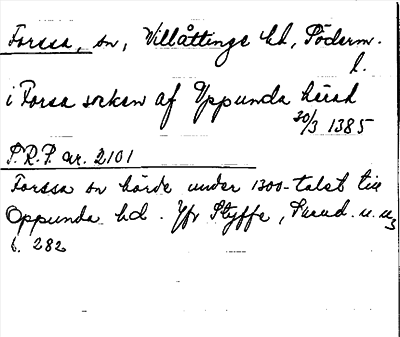 Forssa, sn, Villåttinge hd, Söderm.
l.
i Forsa sorken af Uppunda härad
30/3 1385
S.R.P. nr. 2101
Forssa sn hörde under 1300-talet till
Oppunda hd. Jfr Styffe, Skand. u. u3
s. 282